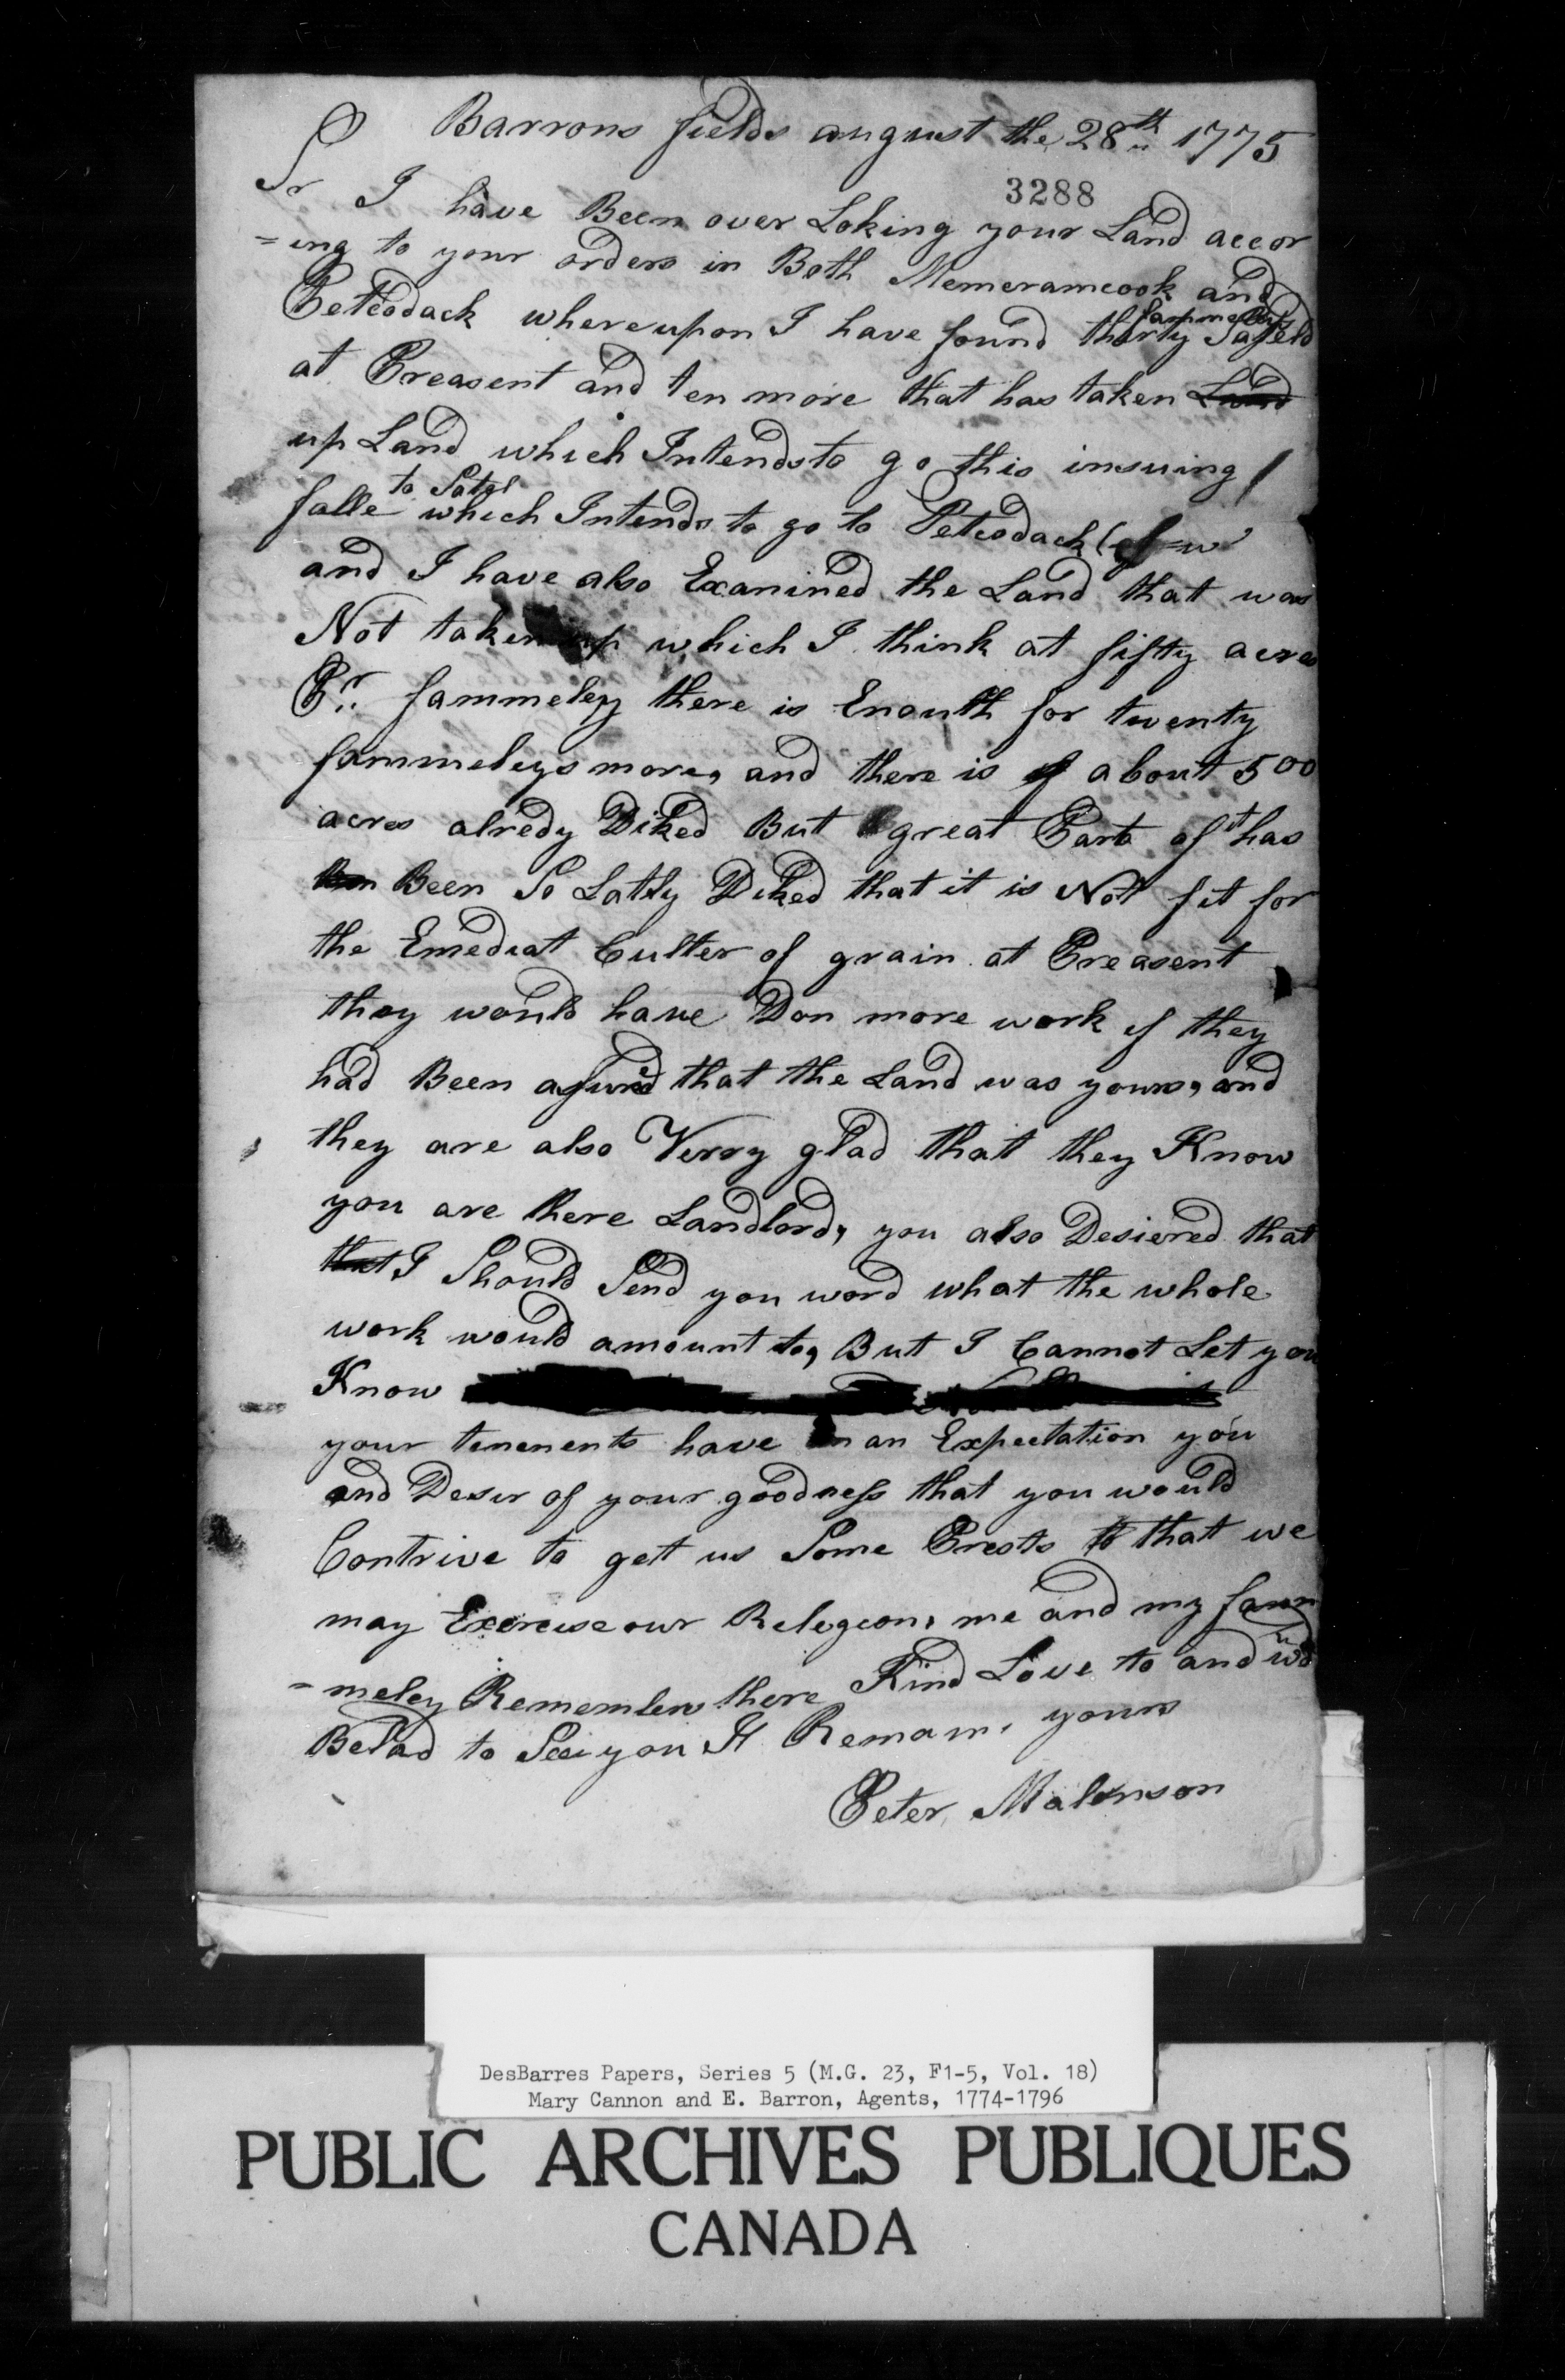 Barrons fields august the 28th 1775
3288
Sr I have Been over Loking your Land accor
=ing to your orders in Both Memeramcook and
Petcodack whereupon I have found thirty fammelys Sateld
at Preasent and ten more that has taken Land
up Land which Intends to go this insuing
falle to Satel which Intends to go to Petcodack
and I have also Exanined the Land that was
Not taken up which I think at fifty acres
Pr fammeley there is Enouth for twenty
fammeleys more, and there is of about 500
acres alredy Diked But great Part of it has
Been So Latly Diked that it is Not fit for
the Emediat Culter of grain at Preasent
they would have Don more work if they
had Been asured that the Land was yours, and
they are also Verry glad that they Know
you are there Landlord, you also Desiered that
that I Should Send you word what the whole
work would amount to, But I Cannot Let you
Know
your tenenents have an Expectation you
and Desir of your goodness that you would
Contrive to gett us Some Prests to that we
may Exercise our Relegeon, me and my fam
=meley Remember there Kind Love to and wd
Be lad to See you I Remain, yours
Peter Malonson
DesBarres Papers, Series 5 (M.G. 23, F1-5, Vol. 18)
Mary Cannon and E. Barron, Agents, 1774-1796
PUBLIC ARCHIVES PUBLIQUES
CANADA